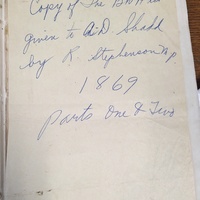 Copy of The
given to A.D Shadd
by R. Stephenson Mp
1869
Parts One & Two